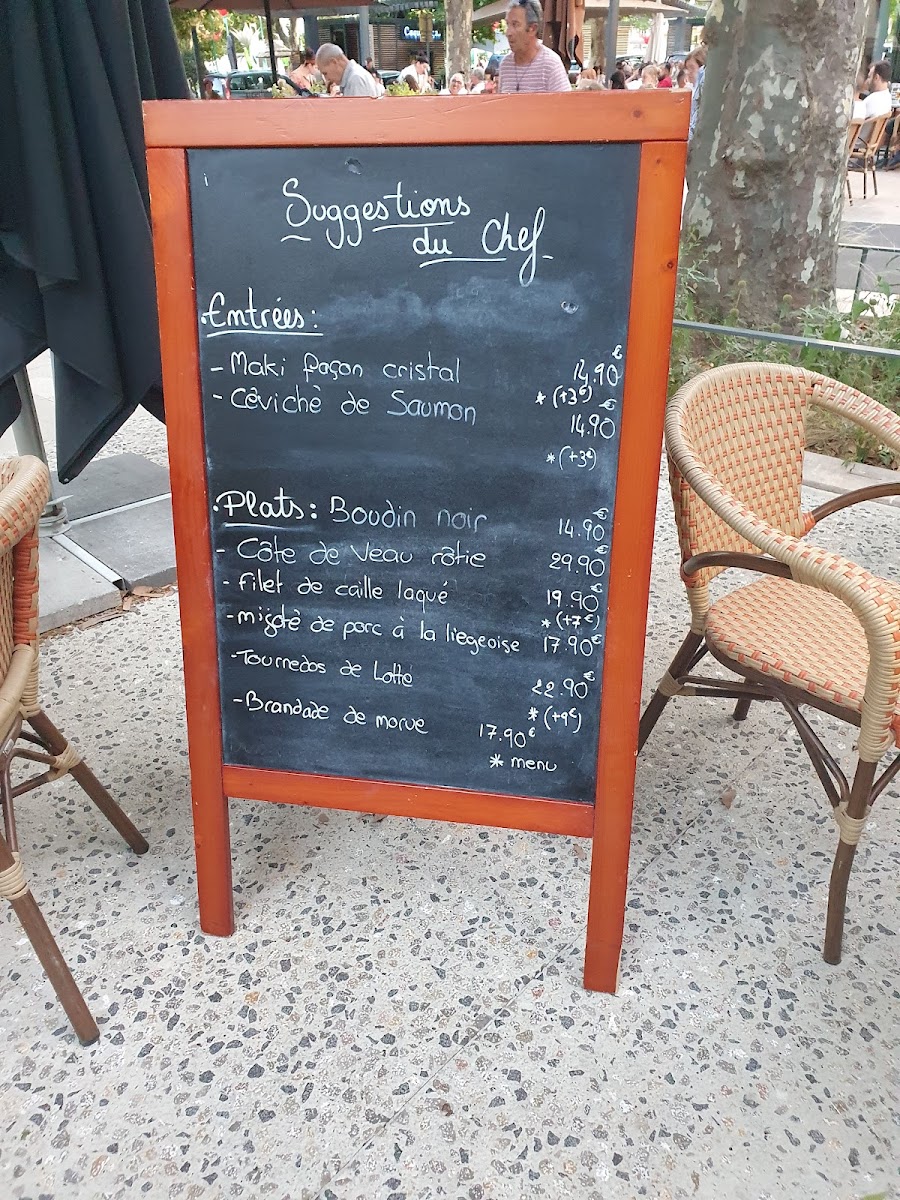 Suggestions
du Chef
Entrées:
- Maki façon cristal 14.90€
*(+3€)
- Céviché de Saumon 14.90€
*(+3€)
Plats: Boudin noir 14.90€
- Côte de veau rôtie 29.90€
- Filet de caille laqué 19.90€
*(+7€)
- mijoté de porc à la liégeoise 17.90€
- Tournedos de Lotte 22.90€
*(+9€)
- Brandade de morue 17.90€
* menu